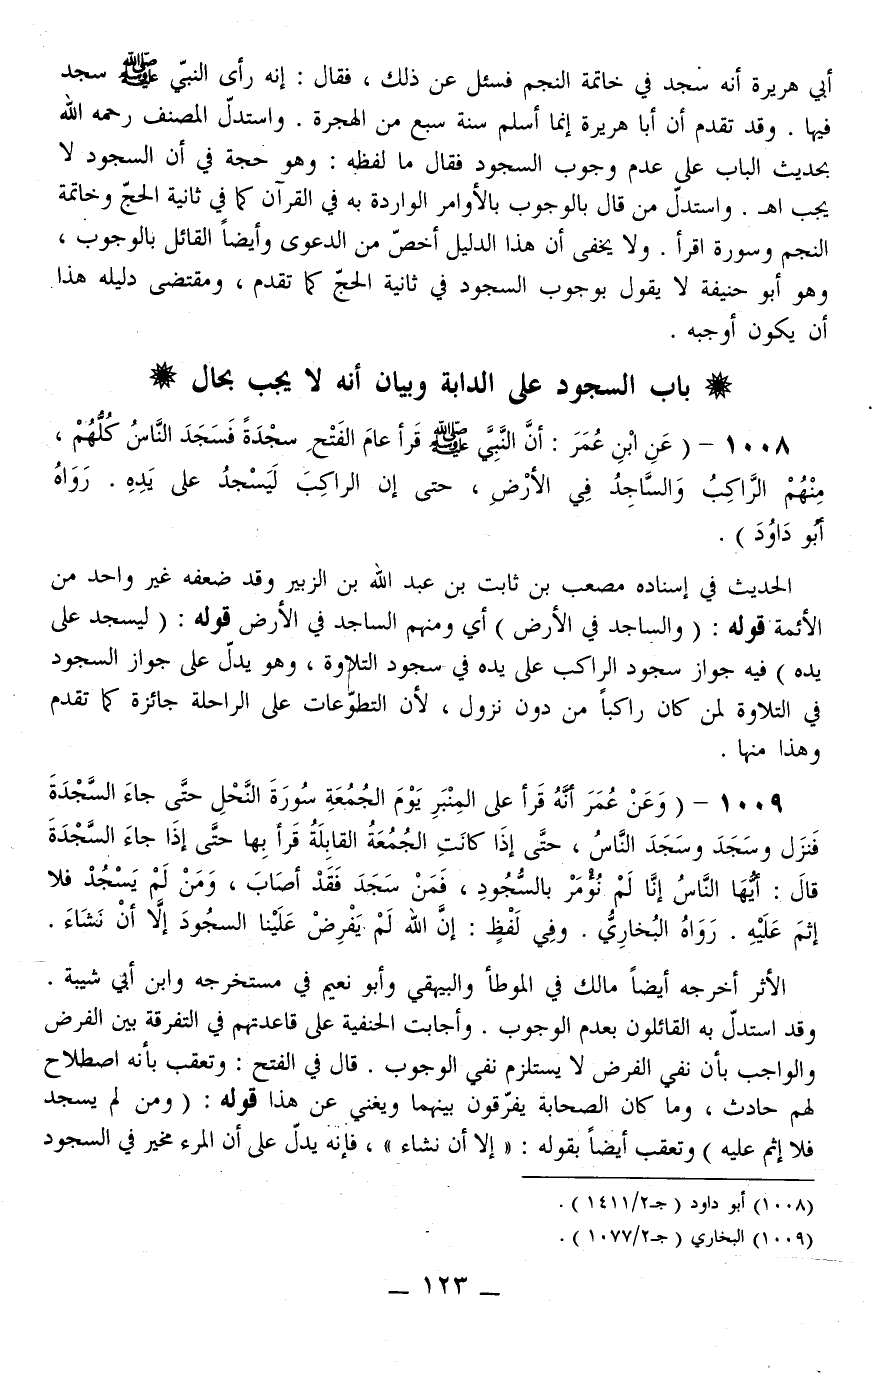 أبي هريرة أنه سجد في خاتمة النجم فسئل عن ذلك ، فقال : إنه رأى النبيّ ﷺ سجد
فيها . وقد تقدم أن أبا هريرة إنما أسلم سنة سبع من الهجرة . واستدلّ المصنف رحمه الله
بحديث الباب على عدم وجوب السجود فقال ما لفظه : وهو حجة في أن السجود لا
يجب اهـ . واستدلّ من قال بالوجوب بالأوامر الواردة به في القرآن كما في ثانية الحجّ وخاتمة
النجم وسورة اقرأ . ولا يخفى أن هذا الدليل أخصّ من الدعوى وأيضاً القائل بالوجوب ،
وهو أبو حنيفة لا يقول بوجوب السجود في ثانية الحجّ كما تقدم ، ومقتضى دليله هذا
أن يكون أوجبه .
✵ باب السجود على الدابة وبيان أنه لا يجب بحال ✵
١٠٠٨ – ( عَنِ ابْنِ عُمَرَ : أنَّ النَّبِيَّ ﷺ قَرأ عامَ الفَتْحِ سجْدَةً فَسَجَدَ النَّاسُ كُلُّهُمْ ،
مِنْهُمْ الرَّاكِبُ وَالسَّاجِدُ فِي الأرْضِ ، حتى إن الراكِبَ لَيَسْجدُ على يَدِهِ . رَوَاهُ
أبُو دَاوُدَ ) .
الحديث في إسناده مصعب بن ثابت بن عبد الله بن الزبير وقد ضعفه غير واحد من
الأئمة قوله : ( والساجد في الأرض ) أي ومنهم الساجد في الأرض قوله : ( ليسجد على
يده ) فيه جواز سجود الراكب على يده في سجود التلاوة ، وهو يدلّ على جواز السجود
في التلاوة لمن كان راكباً من دون نزول ، لأن التطوّعات على الراحلة جائزة كما تقدم
وهذا منها .
١٠٠٩ – ( وَعَنْ عُمَرَ أنَّهُ قَرأ على المِنْبَرِ يَوْمَ الجُمُعَةِ سُورَةَ النَّحْلِ حتَّى جاءَ السَّجْدَةَ
فَنَزَل وسَجَدَ وسَجَدَ النَّاسُ ، حتَّى إذَا كانَتِ الجُمُعَةُ القابِلَةُ قَرأ بِها حتَّى إذَا جاءَ السَّجْدَةَ
قالَ : أيُّهَا النَّاسُ إنَّا لَمْ نُؤْمَرْ بالسُّجُودِ ، فَمَنْ سَجَدَ فَقَدْ أصَابَ ، وَمَنْ لَمْ يَسْجُدْ فلا
إثمَ عَلَيْهِ . رَوَاهُ البُخارِيُّ . وفِي لَفْظٍ : إنَّ الله لَمْ يَفْرِضْ عَلَيْنا السجُودَ إلَّا أنْ نَشَاءَ .
الأثر أخرجه أيضاً مالك في الموطأ والبيهقي وأبو نعيم في مستخرجه وابن أبي شيبة .
وقد استدلّ به القائلون بعدم الوجوب . وأجابت الحنفية على قاعدتهم في التفرقة بين الفرض
والواجب بأن نفي الفرض لا يستلزم نفي الوجوب . قال في الفتح : وتعقب بأنه اصطلاح
لهم حادث ، وما كان الصحابة يفرّقون بينهما ويغني عن هذا قوله : ( ومن لم يسجد
فلا إثم عليه ) وتعقب أيضاً بقوله : « إلا أن نشاء » ، فإنه يدلّ على أن المرء مخير في السجود
(١٠٠٨) أبو داود ( جـ١٤١١/٢ ) .
(١٠٠٩) البخاري ( جـ١٠٧٧/٢ ) .
– ١٢٣ –